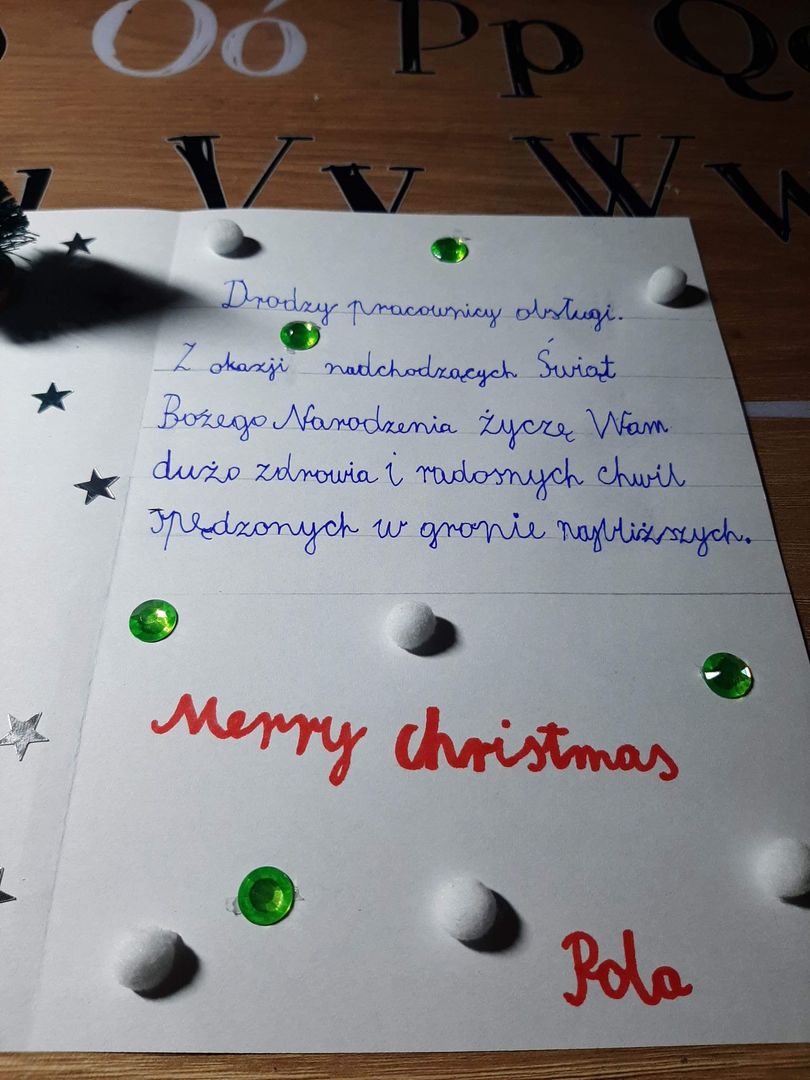 Oó Pp Q
Vv Ww
Drodzy pracownicy obsługi.
Z okazji nadchodzących Świąt
Bożego Narodzenia życzę Wam
dużo zdrowia i radosnych chwil
spędzonych w gronie najbliższych.
Merry christmas
Pola